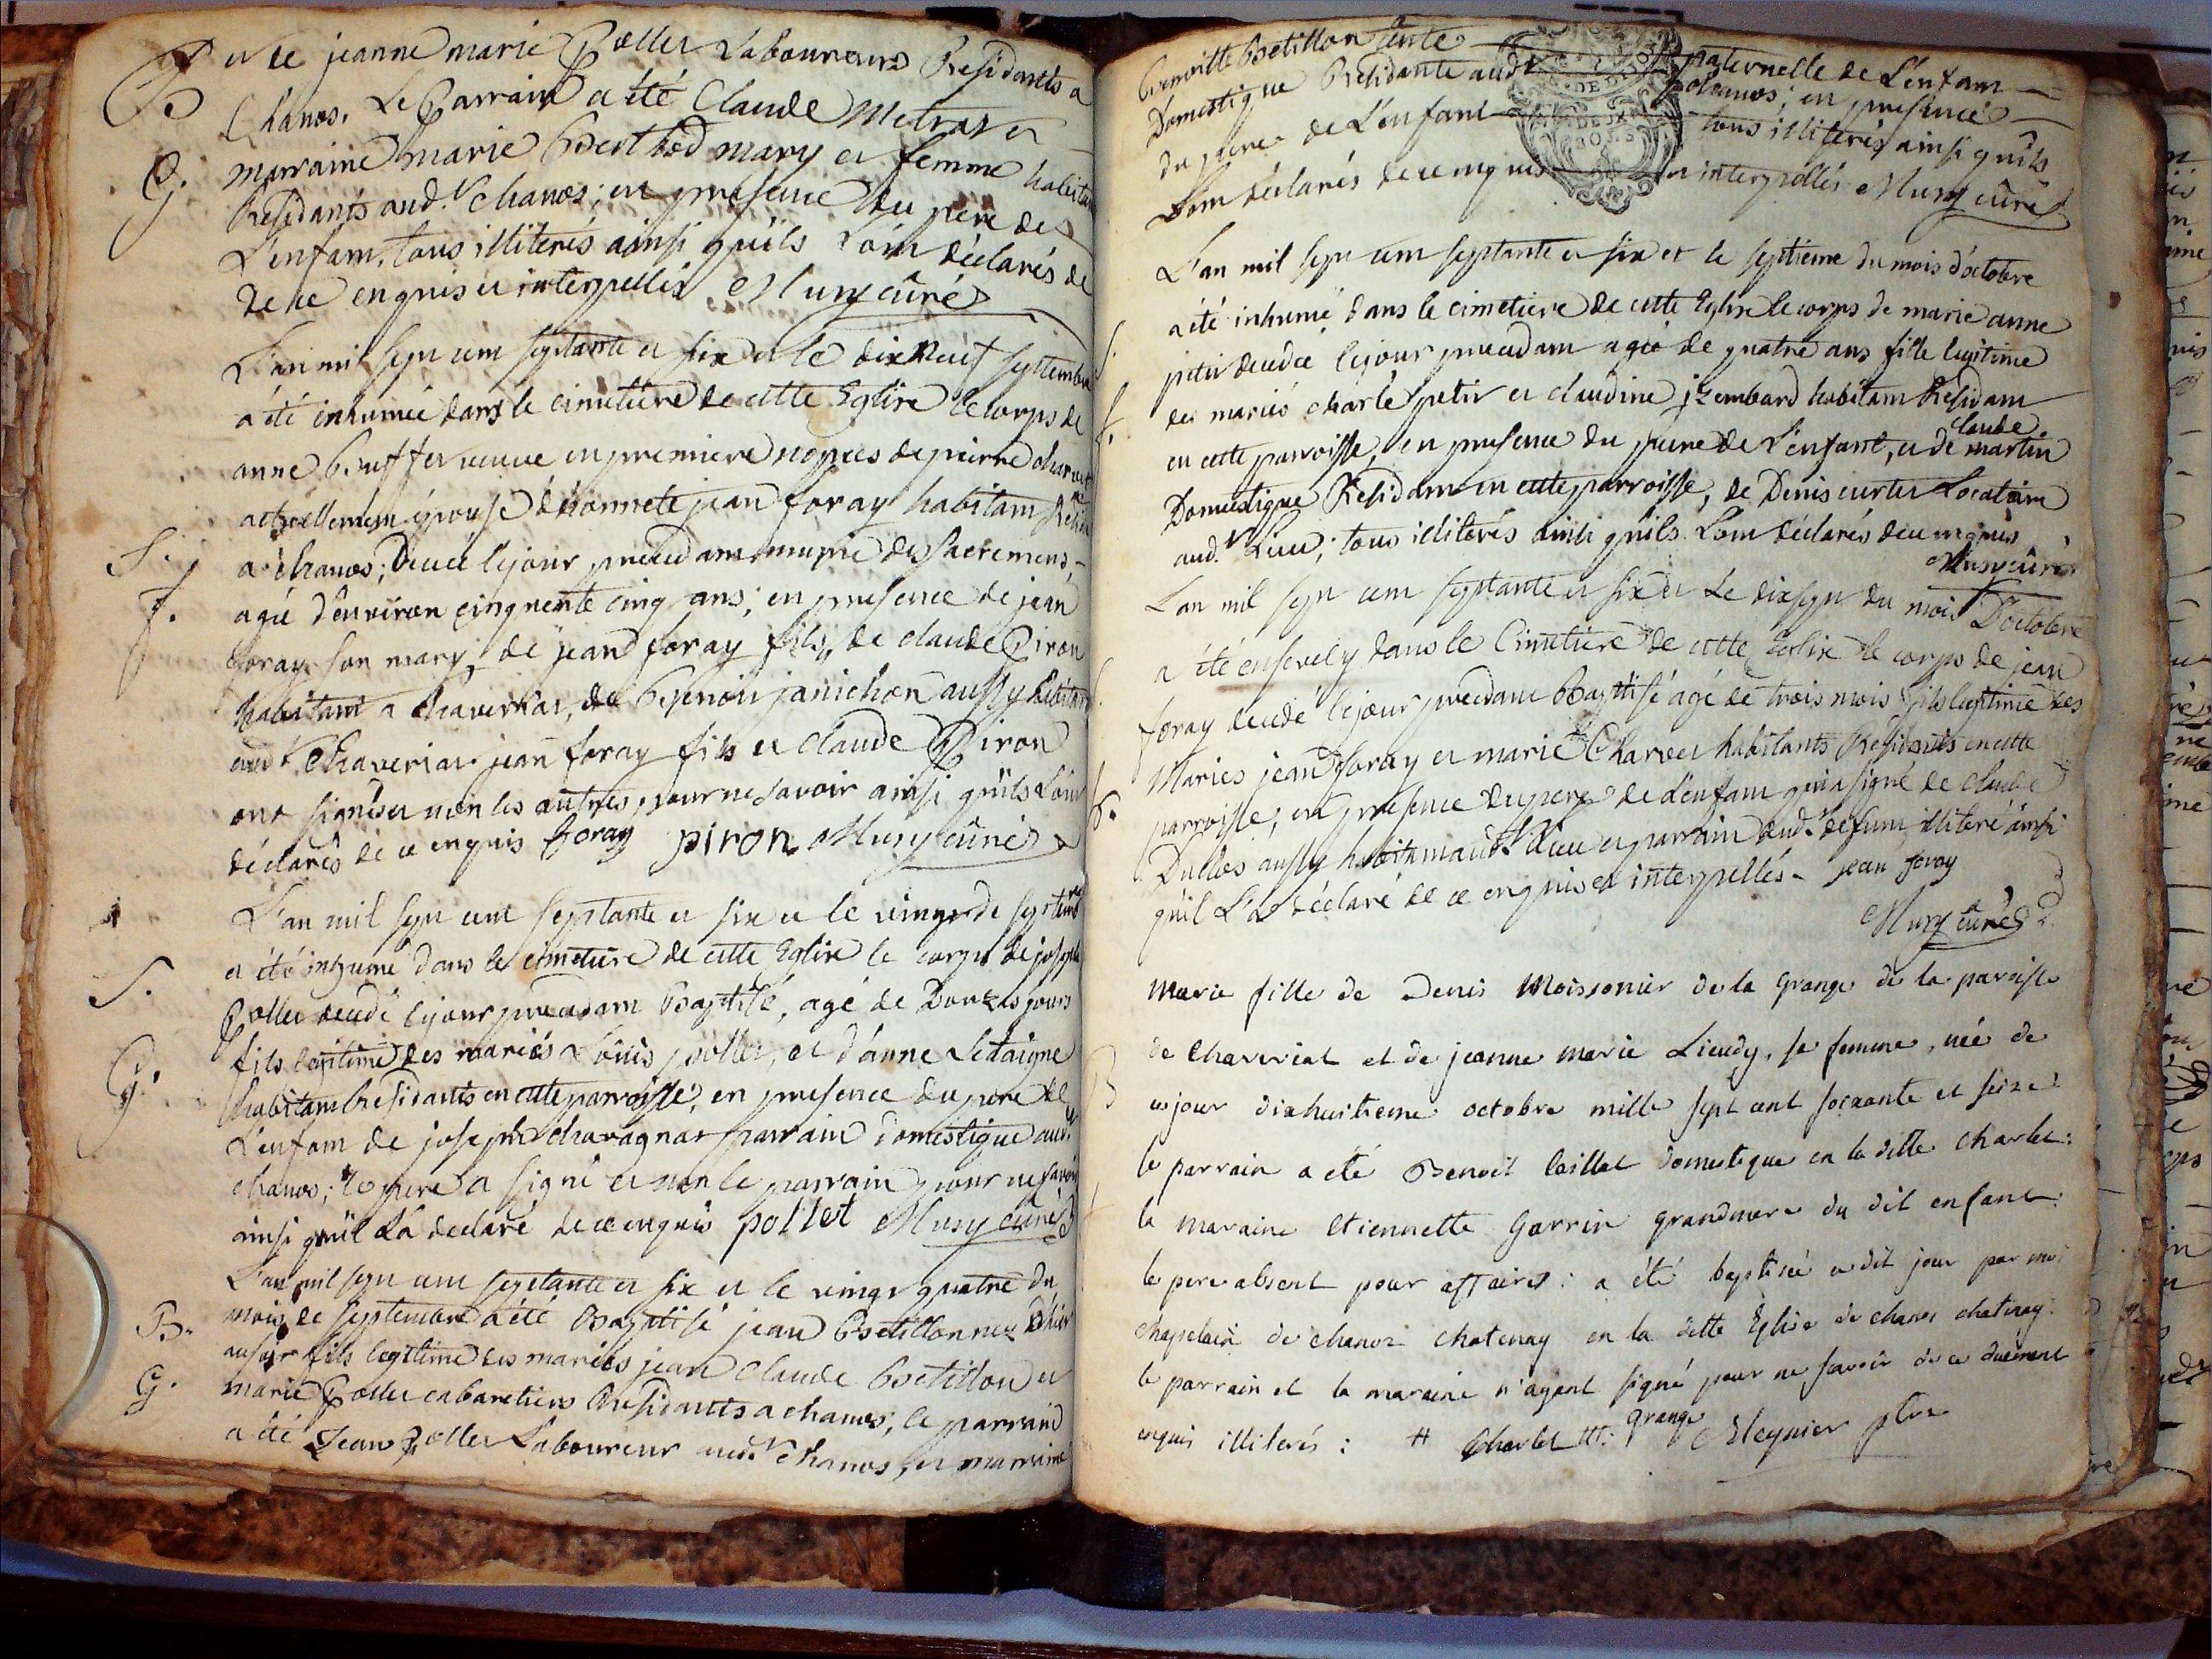 B et de jeanne marie Pollet Laboureurs Residants a
Chanos. Le Parrain a été Claude Metras et
G. marraine marie Berthod mary et femme habitan
Residants aud.t chanos; en presence du pere de
L'enfam, tous illiterés ainsi qu'ils L'om déclarés de
de ce enquis et interpellés Musy curé
L'an mil sept cem septante et six et le dix neuf septembre
a été inhumée dans le cimetiere de cette Eglise le corps de
anne veuve en premiere nopces de pierre
actuellement épouse d'honnete jean foray habitam
S. a chanos; Decedé lejour precedam munie des sacremens,
f. agée d'environ cinquente cinq ans; en presence de jean
foray son mary, de jean foray fils, de claude Piron
habitant a chaveriat, de Benoit janichon aussy habitan
aud.t Chaveriat jean foray fils et claude Piron
ont signés et non les autres pour ne savoir ainsi qu'ils L'om
déclarés de ce enquis foray piron Musy curé
L'an mil sept cent septante et six et le de septembre
S. a été inhumé dans le cimetiere de cette Eglise le corps de joseph
Pollet decedé lejour precedam Baptisé, agé de Douze jours
G. fils legitime des mariés Louis pollet, et d'anne
habitans Residants en cette parroisse, en presence du pere de
L'enfam de joseph chavagnat parrain domestique aud.t
chanos; le pere a signé et non le parrain pour ne savoir
ainsi qu'il L'a declaré de ce enquis pollet Musy curé
L'an mil sept cem septante et six et le vingt quatre du
B. mois de septembre a été Baptisé jean Betillon nez D'hier
ausoir fils legitime des mariés jean claude Betillon et
G. marie Pollet cabaretiers Residants a chanos; le parrain
a été Jean Pollet Laboureur aud.t chanos, et marraine
Benoitte Betillon tante paternelle de L'enfam
Domestique Residante aud.t chanos; en presence
du pere de L'enfant tous illiterés ainsi qu'ils
Lom déclarés de ce enquis et interpellés Musy curé
L'an mil sept cem septante et six et le septieme du mois d'octobre
S. a été inhumé dans le cimetiere de cette Eglise le corps de marie anne
petit decedée lejour precedam agée de quatre ans fille legitime
f. des mariés charle petit et claudine jzembard habitam Residam
en cette parroisse, en presence du pere de L'enfant, et de claude martin
Domestique Residam en cette parroisse, de Denis curtet Locataire
aud.t Lieu; tous illiterés ainsi qu'ils Lom déclarés de ce enquis
Musy curé
L'an mil sept cem septante et six et Le dix sept du mois D'octobre
a été ensevely dans le Cimetiere de cette Eglise le corps de jean
foray decedé lejour precedam Baptisé agé de trois mois fils legitime des
Mariés jean foray et marie Charvet habitants Residants en cette
parroisse, en presence du pere de L'enfam qui a signé de claude
Dublos aussy habitam aud.t Lieu et parrain dud.t defunt, illiteré ainsi
qu'il L'a déclaré de ce enquis et interpellés. jean foray
Musy curé
marie fille de Denis Moissonier de la grange de la paroisse
B de Chaveriat et de jeanne marie Lieudy, sa femme, née de
ce jour dixhuitieme octobre mille sept cent soixante et seize
le parrain a été Benoit Caillat domestique en la ditte charlet:
la maraine Etiennette Garrin grandmere du dit enfant:
le pere absent pour affaires: a été baptisée ce dit jour par moi
chapelain de chanoz chatenay en la ditte Eglise de chanos chatenay:
le parrain et la maraine n'ayant signé pour ne savoir de ce duëment
enquis illiterés: # Charlet ttt: grange Meynier ptre